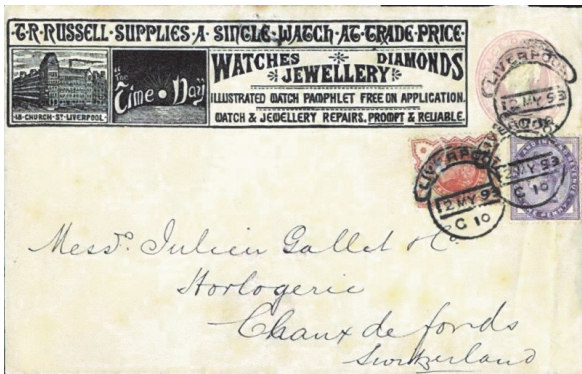 T.R. RUSSELL · SUPPLIES · A · SINGLE · WATCH · AT · TRADE · PRICE ·
48 · CHURCH · ST · LIVERPOOL ·
"The Time o' Day"
WATCHES DIAMONDS
JEWELLERY
ILLUSTRATED WATCH PAMPHLET FREE ON APPLICATION.
WATCH & JEWELLERY REPAIRS, PROMPT & RELIABLE.
LIVERPOOL
12 MY 93
LIVERPOOL
12 MY 93
C 10
12 MY 93
C 10
Messrs. Julien Gallet & Co.
Horlogerie
Chaux de fonds
Switzerland